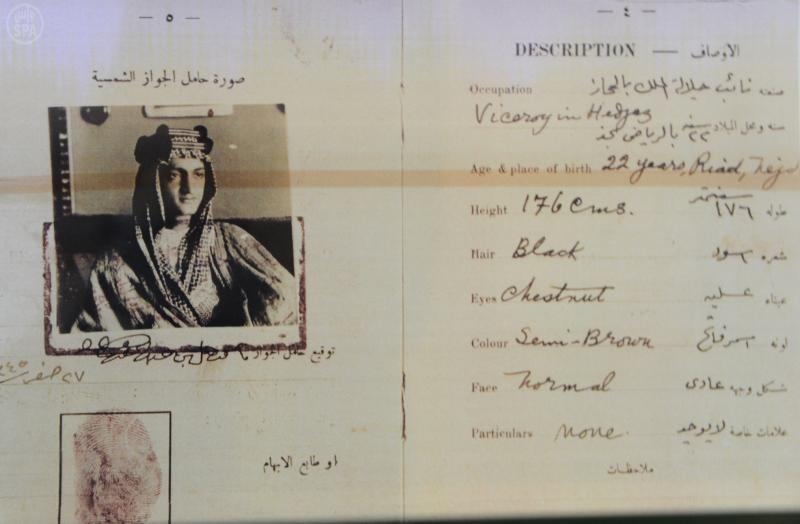 SPA
واس
— ٤ —
DESCRIPTION — الاوصاف
Occupation نائب جلالة الملك بالحجاز صنعته
Viceroy in Hedjaz
٢٢ سنه بالرياض نجد سنه ومحل الميلاد
Age & place of birth 22 years, Riad, Nejd
Height 176 cms. ١٧٦ سنتمتر طوله
Hair Black اسود شعره
Eyes Chestnut عسليه عيناه
Colour Semi-Brown اسمر فاتح لونه
Face Normal عادى شكل وجهه
Particulars None. لا يوجد علامات خاصة
ملاحظات
— ٥ —
صورة حامل الجواز الشمسية
توقيع حامل الجواز
٢٧ صفر
او طابع الابهام